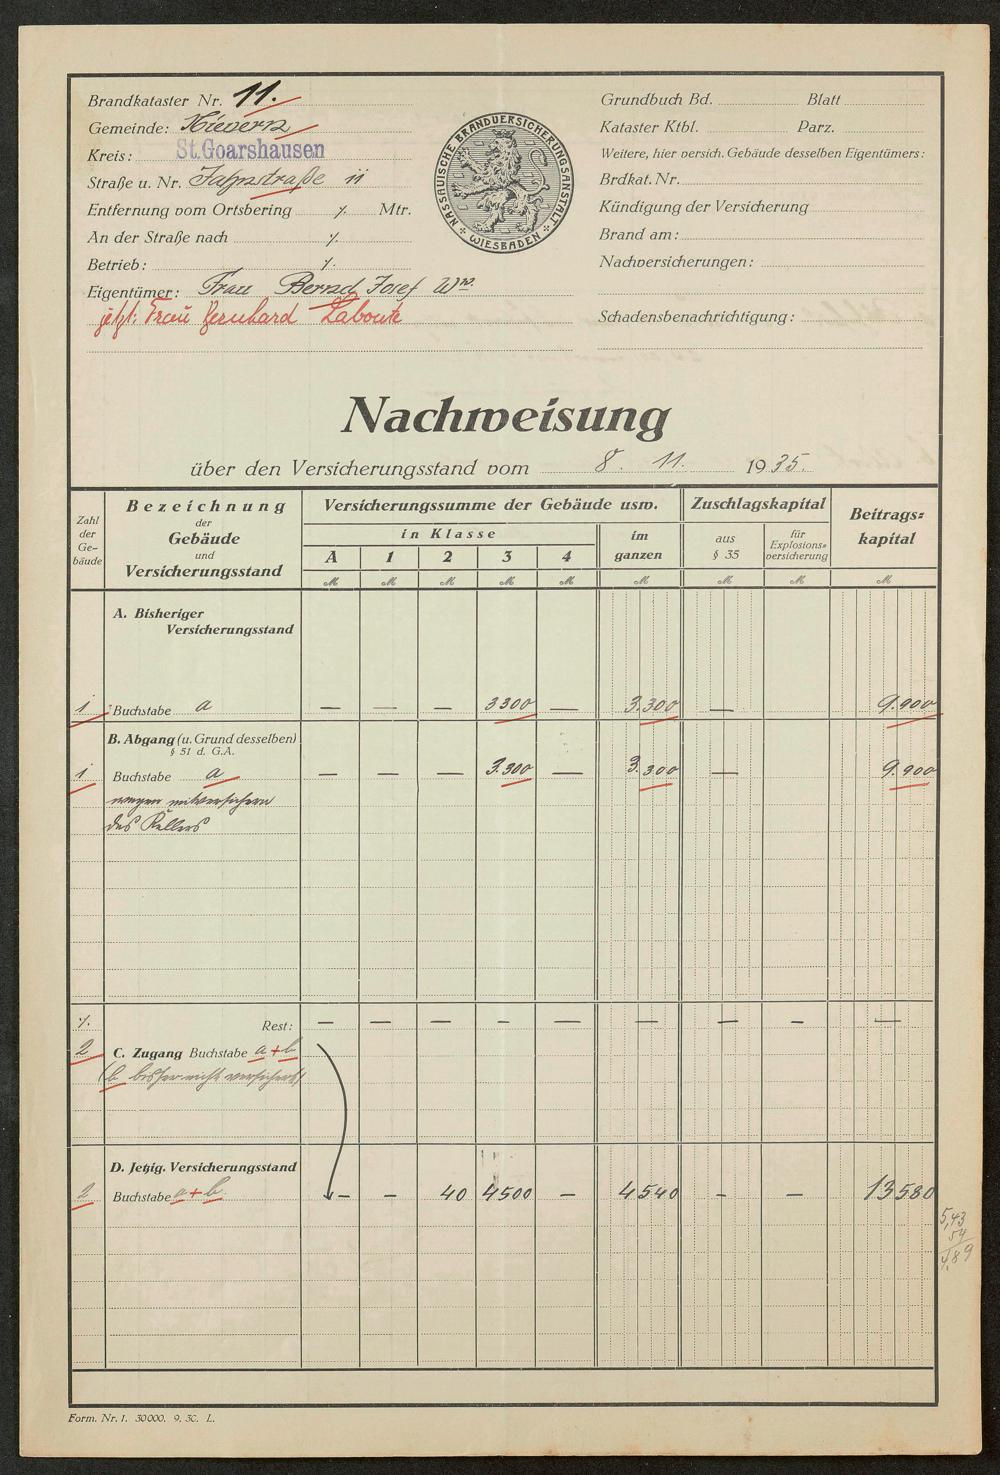 Brandkataster Nr. 11.
Gemeinde: Nievern
Kreis: St. Goarshausen
Straße u. Nr. Jahnstraße 11
Entfernung vom Ortsbering ·/. Mtr.
An der Straße nach ·/.
Betrieb: ·/.
Eigentümer: Frau Bernd Josef Ww.
jetzt: Frau Bernhard
NASSAUISCHE BRANDVERSICHERUNGSANSTALT
WIESBADEN
Grundbuch Bd. Blatt
Kataster Ktbl. Parz.
Weitere, hier versich. Gebäude desselben Eigentümers:
Brdkat. Nr.
Kündigung der Versicherung
Brand am:
Nachversicherungen:
Schadensbenachrichtigung:
Nachweisung
über den Versicherungsstand vom 8. 11. 1935.
Zahl der Ge-bäude
Bezeichnung der Gebäude und Versicherungsstand
Versicherungssumme der Gebäude usw.
in Klasse
A 1 2 3 4
im ganzen
Zuschlagskapital
aus § 35
für Explosions-versicherung
Beitrags-kapital
M M M M M M M M M
A. Bisheriger
Versicherungsstand
1 Buchstabe a — — — 3300 — 3.300 — 9.900
B. Abgang (u. Grund desselben)
§ 51 d. G.A.
1 Buchstabe a — — — 3.300 — 3.300 — 9.900
wegen mitversichern
des Kellers
·/. Rest: — — — – — — — – —
2 C. Zugang Buchstabe a + b
(b bisher nicht versichert)
D. Jetzig. Versicherungsstand
2 Buchstabe a + b – – 40 4500 – 4540 – – 13580
5,43
54
4,89
Form. Nr. 1. 30000. 9. 30. L.